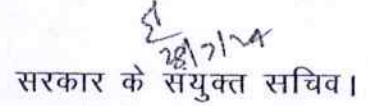 28/7/14
सरकार के संयुक्त सचिव।